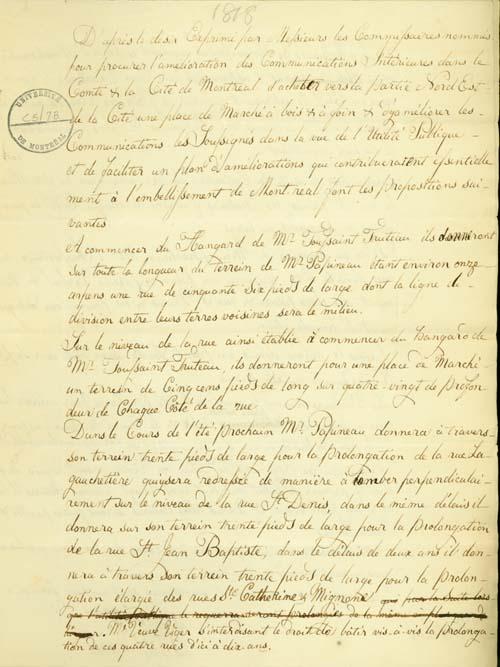 1818
D'après le desir Exprimé par Messieurs les Commissaires nommés
pour procurer l'amelioration des Communications Intérieures dans le
Comté & la Cité de Montreal d'acheter vers la partie Nord Est
de la Cité une place de Marché à bois & à foin & d'ameliorer les
Communications les Soussignés dans la vue de l'Utilité Publique
et de faciliter un plan d'améliorations qui contribueraient essentielle
ment à l'embellissement de Montreal font les propositions sui-
vantes
A commencer du Hangard de Mr. Toussaint Truteau ils donneront
sur toute la longueur du terrein de Mr. Papineau étant environ onze
arpens une rue de cinquante six pieds de large dont la ligne de
division entre leurs terres voisines sera le milieu.
Sur le niveau de la rue ainsi établie à commencer du Hangard de
Mr. Toussaint Truteau, ils donneront pour une place de Marché
un terrein de Cinq cens pieds de long sur quatre vingt de profon
deur de Chaque Côté de la rue
Dans le Cours de l'été prochain Mr. Papineau donnera à travers
son terrein trente pieds de large pour la prolongation de la rue La
gauchetière qui sera redressée de manière à tomber perpendiculai-
rement sur le niveau de la rue St. Denis, dans le même délais il
donnera sur son terrein trente pieds de large pour la prolongation
de la rue St. Jean Baptiste, dans le délais de deux ans il don-
nera à travers son terrein trente pieds de large pour la prolon-
gation élargie des rues Ste. Catherine & Mignone
Me. Veuve Viger s'interdisant le droit de bâtir vis-à-vis la prolonga
tion de ces quatre rues d'ici à dix ans.
UNIVERSITÉ
DE MONTRÉAL